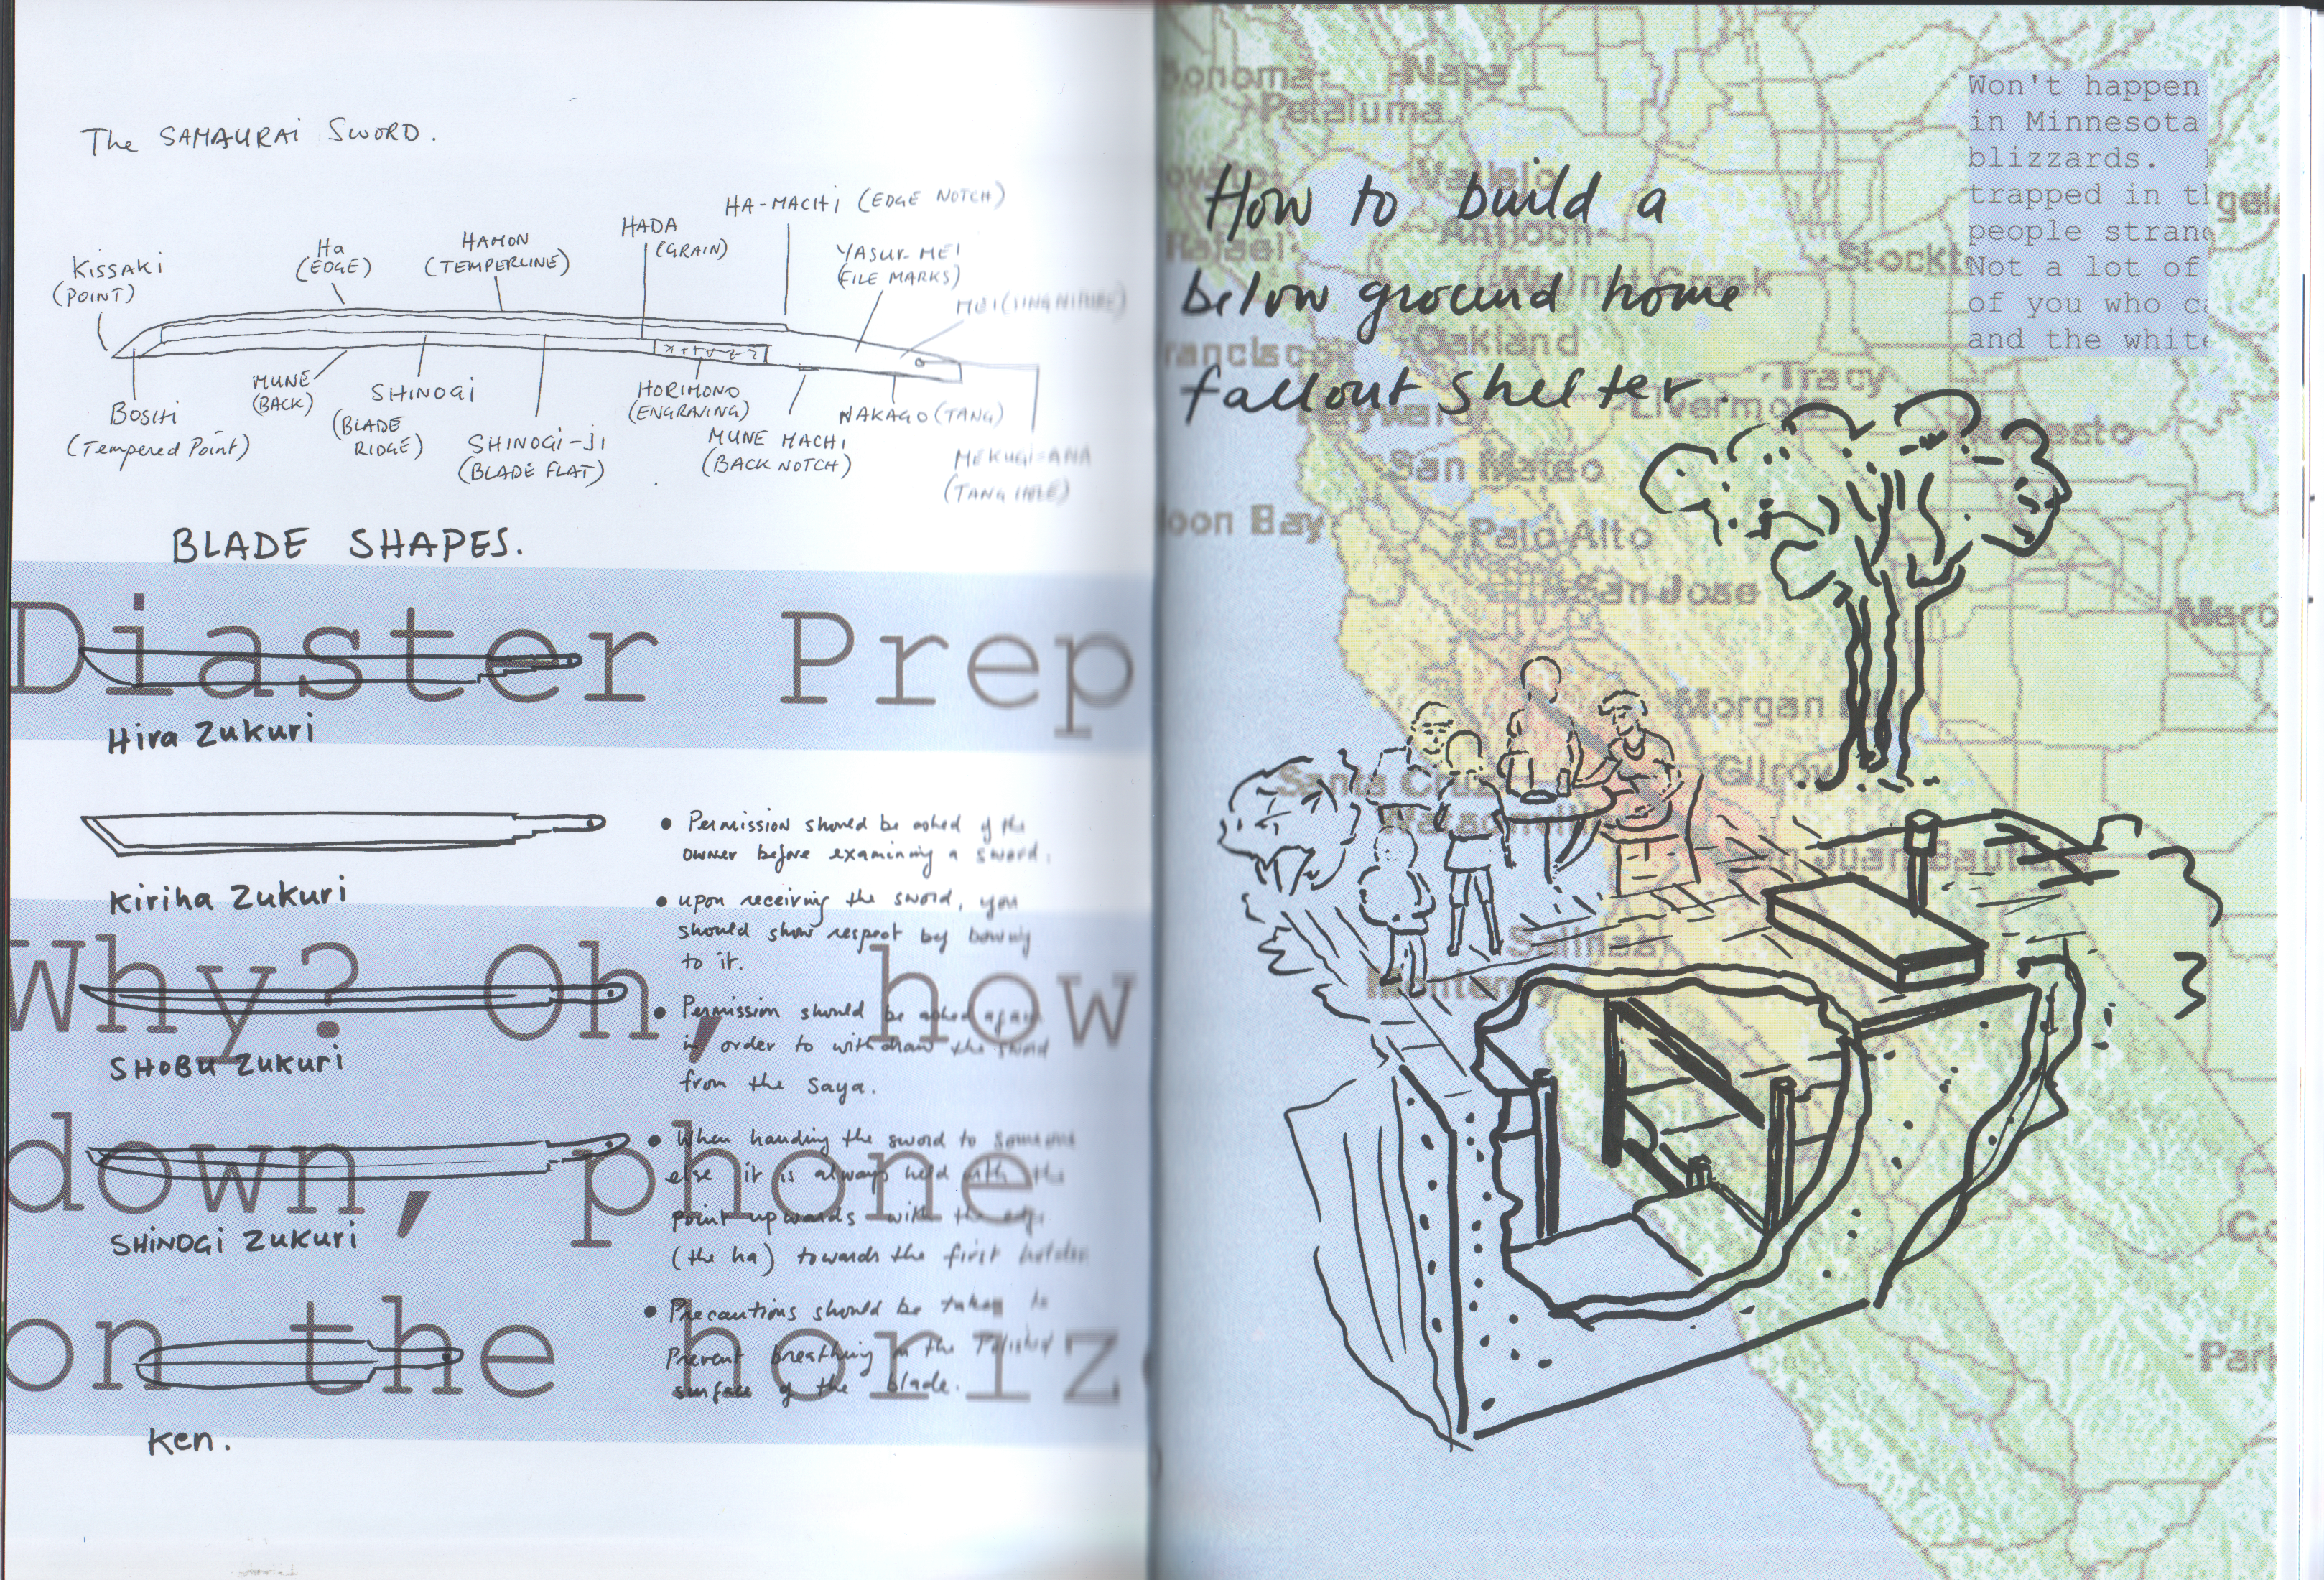 The SAMAURAi SWORD.
HA-MACHi (EDGE NOTCH)
HADA
(GRAIN)
HAMON
(TEMPERLINE)
Ha
(EDGE)
YASUR-MEI
(FILE MARKS)
KiSSAKi
(POINT)
MEI
MUNE
(BACK)
SHINOGi
(BLADE
RIDGE)
HORIMONO
(ENGRAVING)
NAKAGO (TANG)
BOSHI
(Tempered Point)
SHINOGi-Ji
(BLADE FLAT)
MUNE MACHi
(BACK NOTCH)
MEKUGI-ANA
(TANG HOLE)
BLADE SHAPES.
Diaster Prep
Hira Zukuri
Kiriha Zukuri
Why? Oh, how
SHOBU ZUKUri
down, phone
SHiNOGi ZUKUri
on the horiz
Ken.
• Permission should be asked of the
owner before examining a sword.
• upon receiving the sword, you
should show respect by bowing
to it.
• Permission should be asked again
in order to withdraw the sword
from the saya.
• When handing the sword to someone
else it is always held with the
point upwards with the edge
(the ha) towards the first holder
• Precautions should be taken to
Prevent breathing on the Polished
surface of the blade.
How to build a
below ground home
fallout shelter.
Won't happen
in Minnesota
blizzards.
trapped in
people
Not a lot of
of you who
and the
Sonoma
Napa
Petaluma
Vallejo
Rafael
Antioch
Walnut Creek
Stockt
Francisco
Oakland
Tracy
Livermore
Hayward
Modesto
San Mateo
Moon Bay
Palo Alto
San Jose
Merc
Morgan
Gilroy
Santa Cruz
Watsonville
San Juan Bautista
Salinas
Monterey
Co
Park